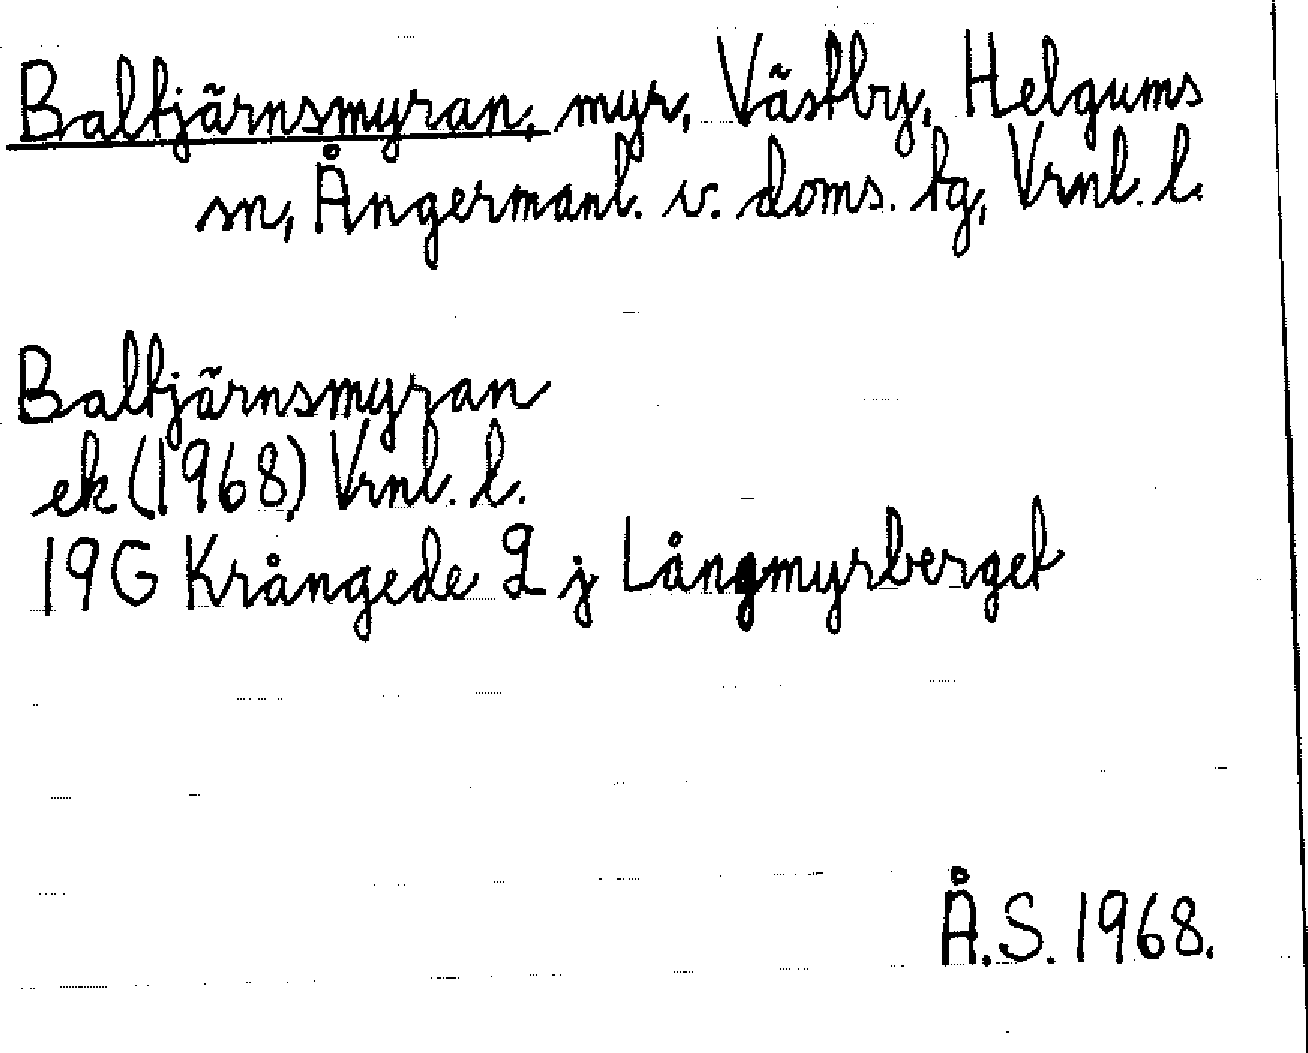 Baltjärnsmyran, myr, Västby, Helgums
sn, Ångermanl. v. doms. tg, Vrnl. l.
Baltjärnsmyran
ek (1968) Vrnl. l.
19G Krångede 9 j Långmyrberget
Å.S. 1968.